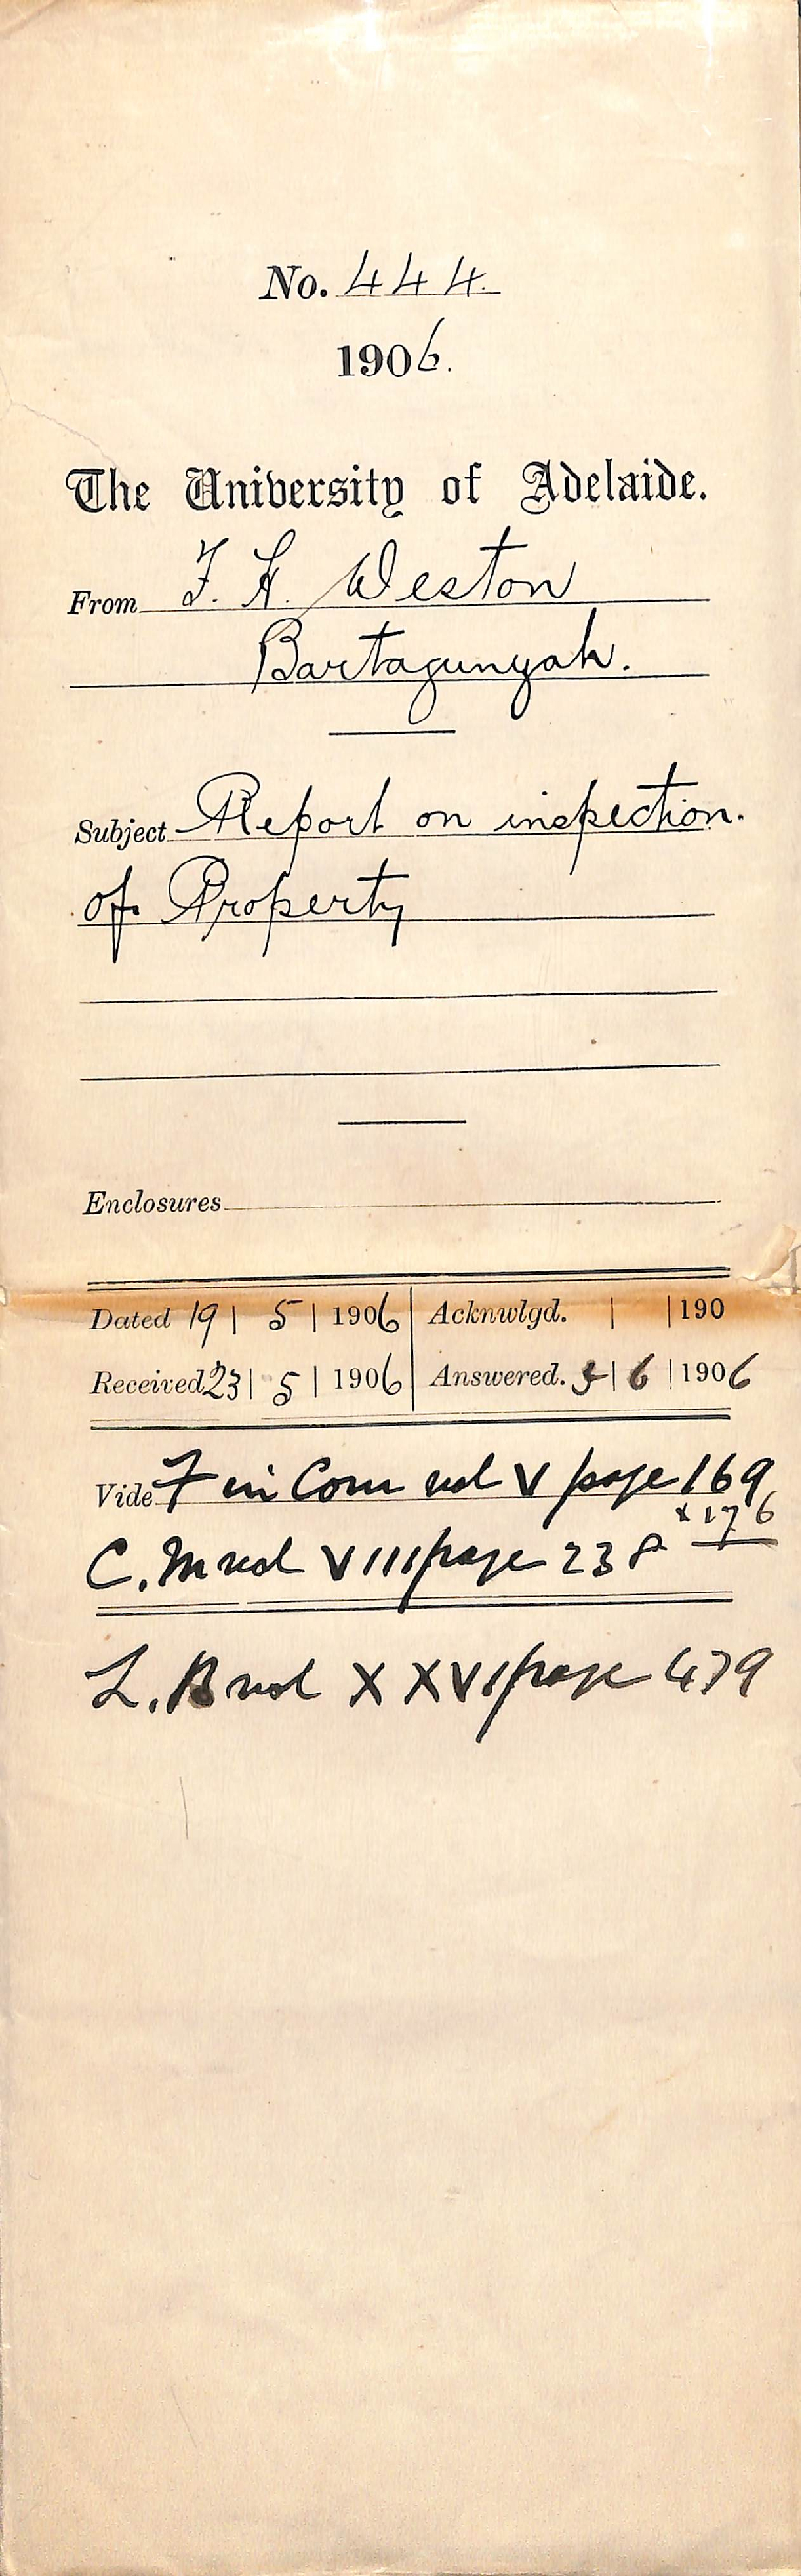 No. 444.
1906.
The University of Adelaide.
From F. H. Weston
Bartagunyah.
Subject Report on inspection.
of Property
Enclosures
Dated 19 | 5 | 1906 Acknwlgd. | | 190
Received 23 | 5 | 1906 Answered. | 6 | 1906
Vide Fin Com vol V page 169
x 176
C. M vol VIII page 238
L. B vol XXVI page 479